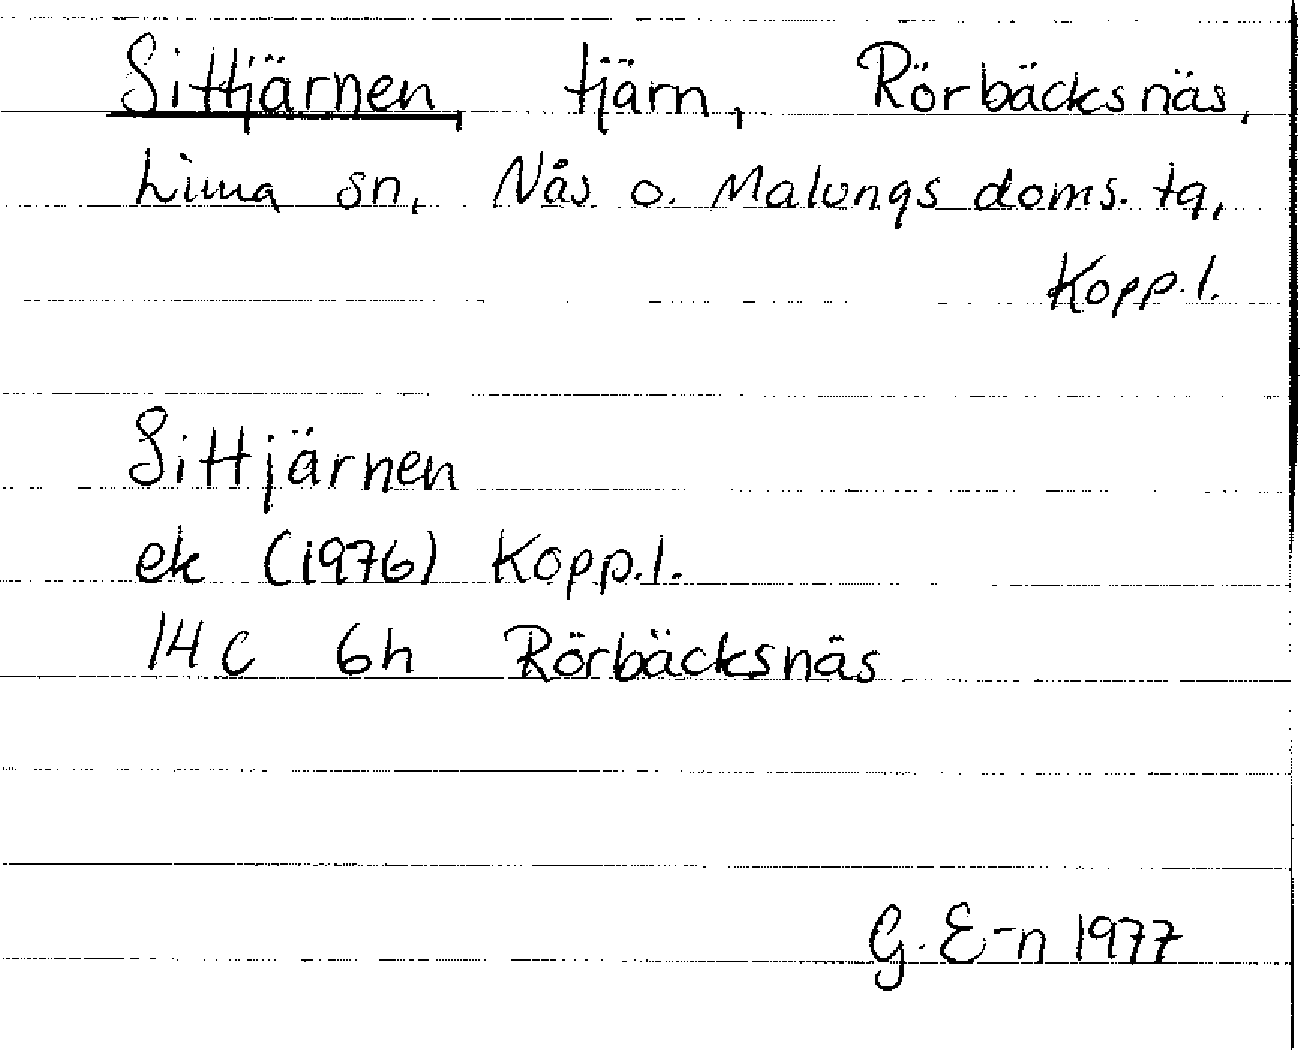 Sittjärnen, tjärn, Rörbäcksnäs,
Lima sn, Nås o. Malungs doms. tg,
Kopp.l.
Sittjärnen
ek (1976) Kopp.l.
14 C 6h Rörbäcksnäs
G. E-n 1977